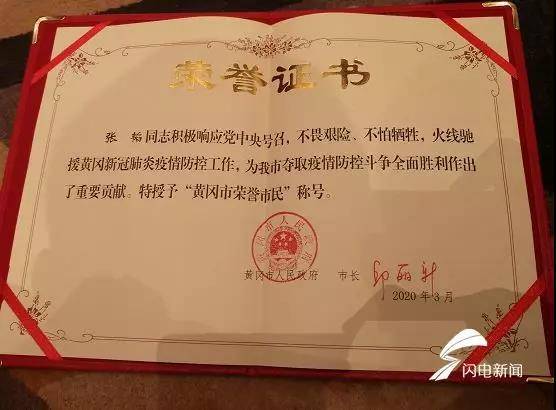 荣誉证书
张 同志积极响应党中央号召，不畏艰险、不怕牺牲，火线驰
援黄冈新冠肺炎疫情防控工作，为我市夺取疫情防控斗争全面胜利作出
了重要贡献。特授予“黄冈市荣誉市民”称号。
黄冈市人民政府
黄冈市人民政府 市长 邱丽新
2020年3月
闪电新闻